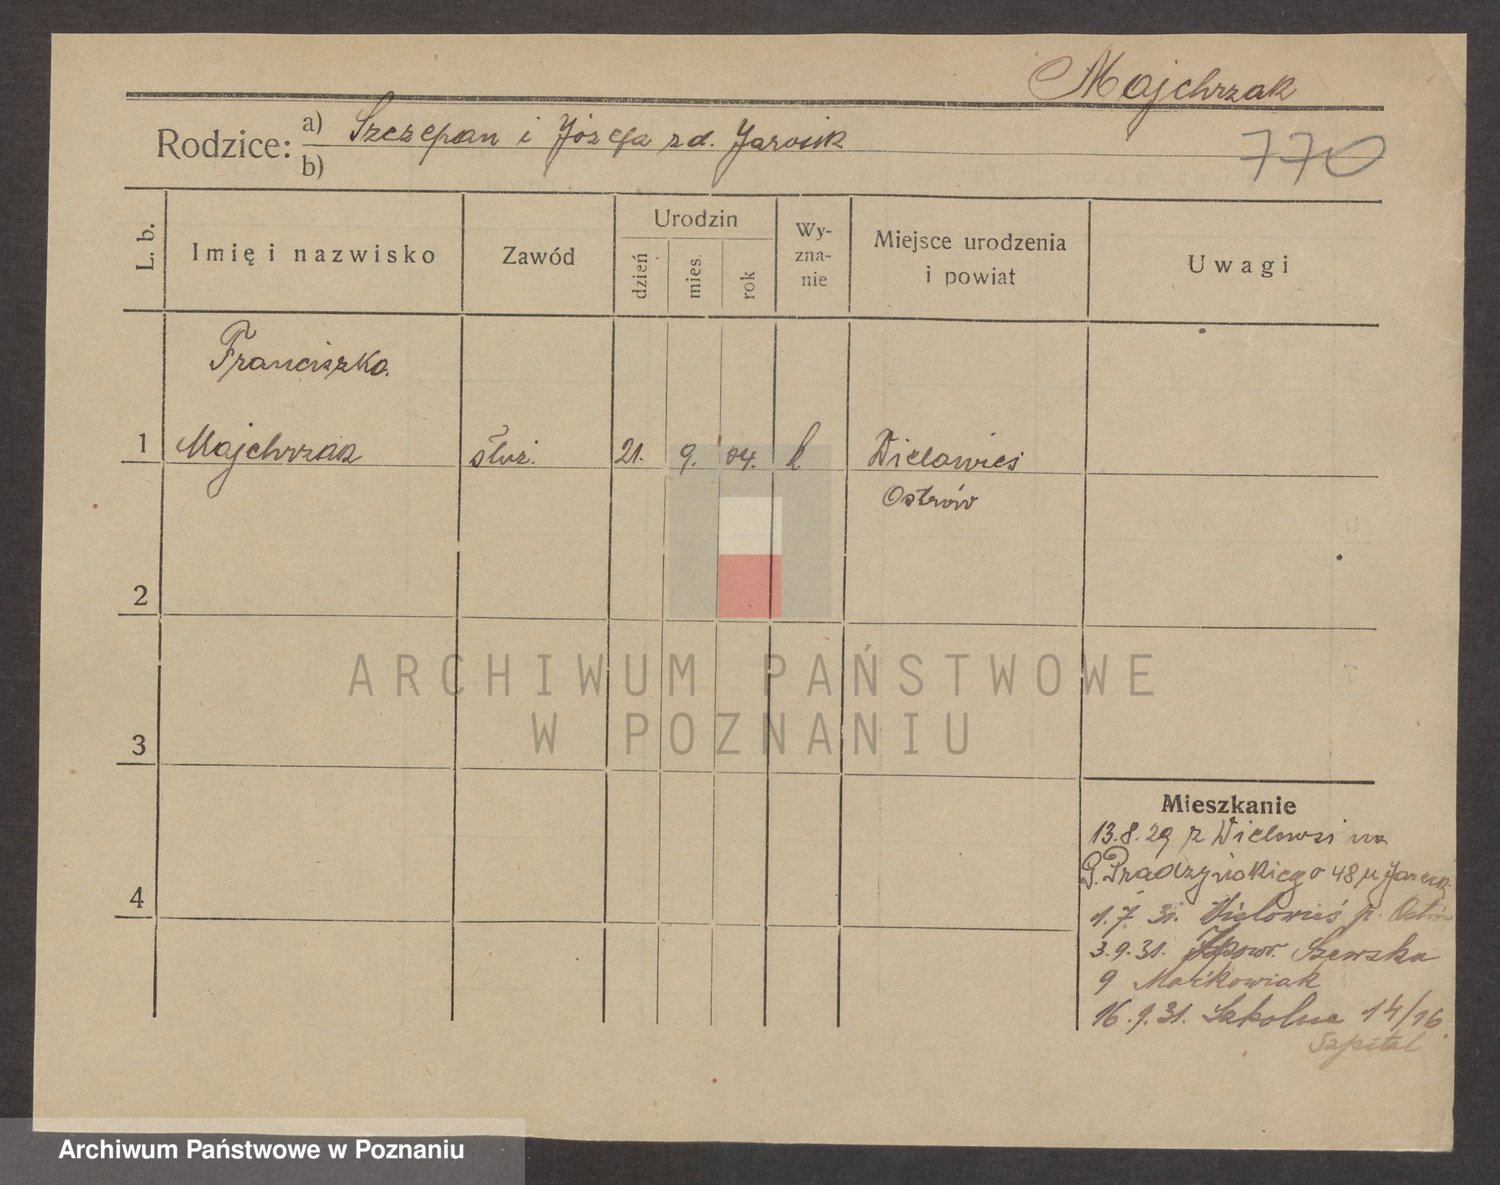 Majchrzak
Rodzice: a) Szczepan i Józefa zd. Jarosik
b)
770
L. b.
Imię i nazwisko
Zawód
Urodzin
dzień
mies.
rok
Wy-
zna-
nie
Miejsce urodzenia
i powiat
Uwagi
Franciszka
1 Majchrzak służ. 21. 9. 04. k. Wielowieś
Ostrów
2
3
4
ARCHIWUM PAŃSTWOWE
W POZNANIU
Mieszkanie
13.8.29 z Wielowsi na
G. Prądzyńskiego 48 u
1.7.31. Wielowieś p. Ostrów
3.9.31. Szewska
9 Maćkowiak
16.9.31. Szkolna 14/16
Szpital
Archiwum Państwowe w Poznaniu